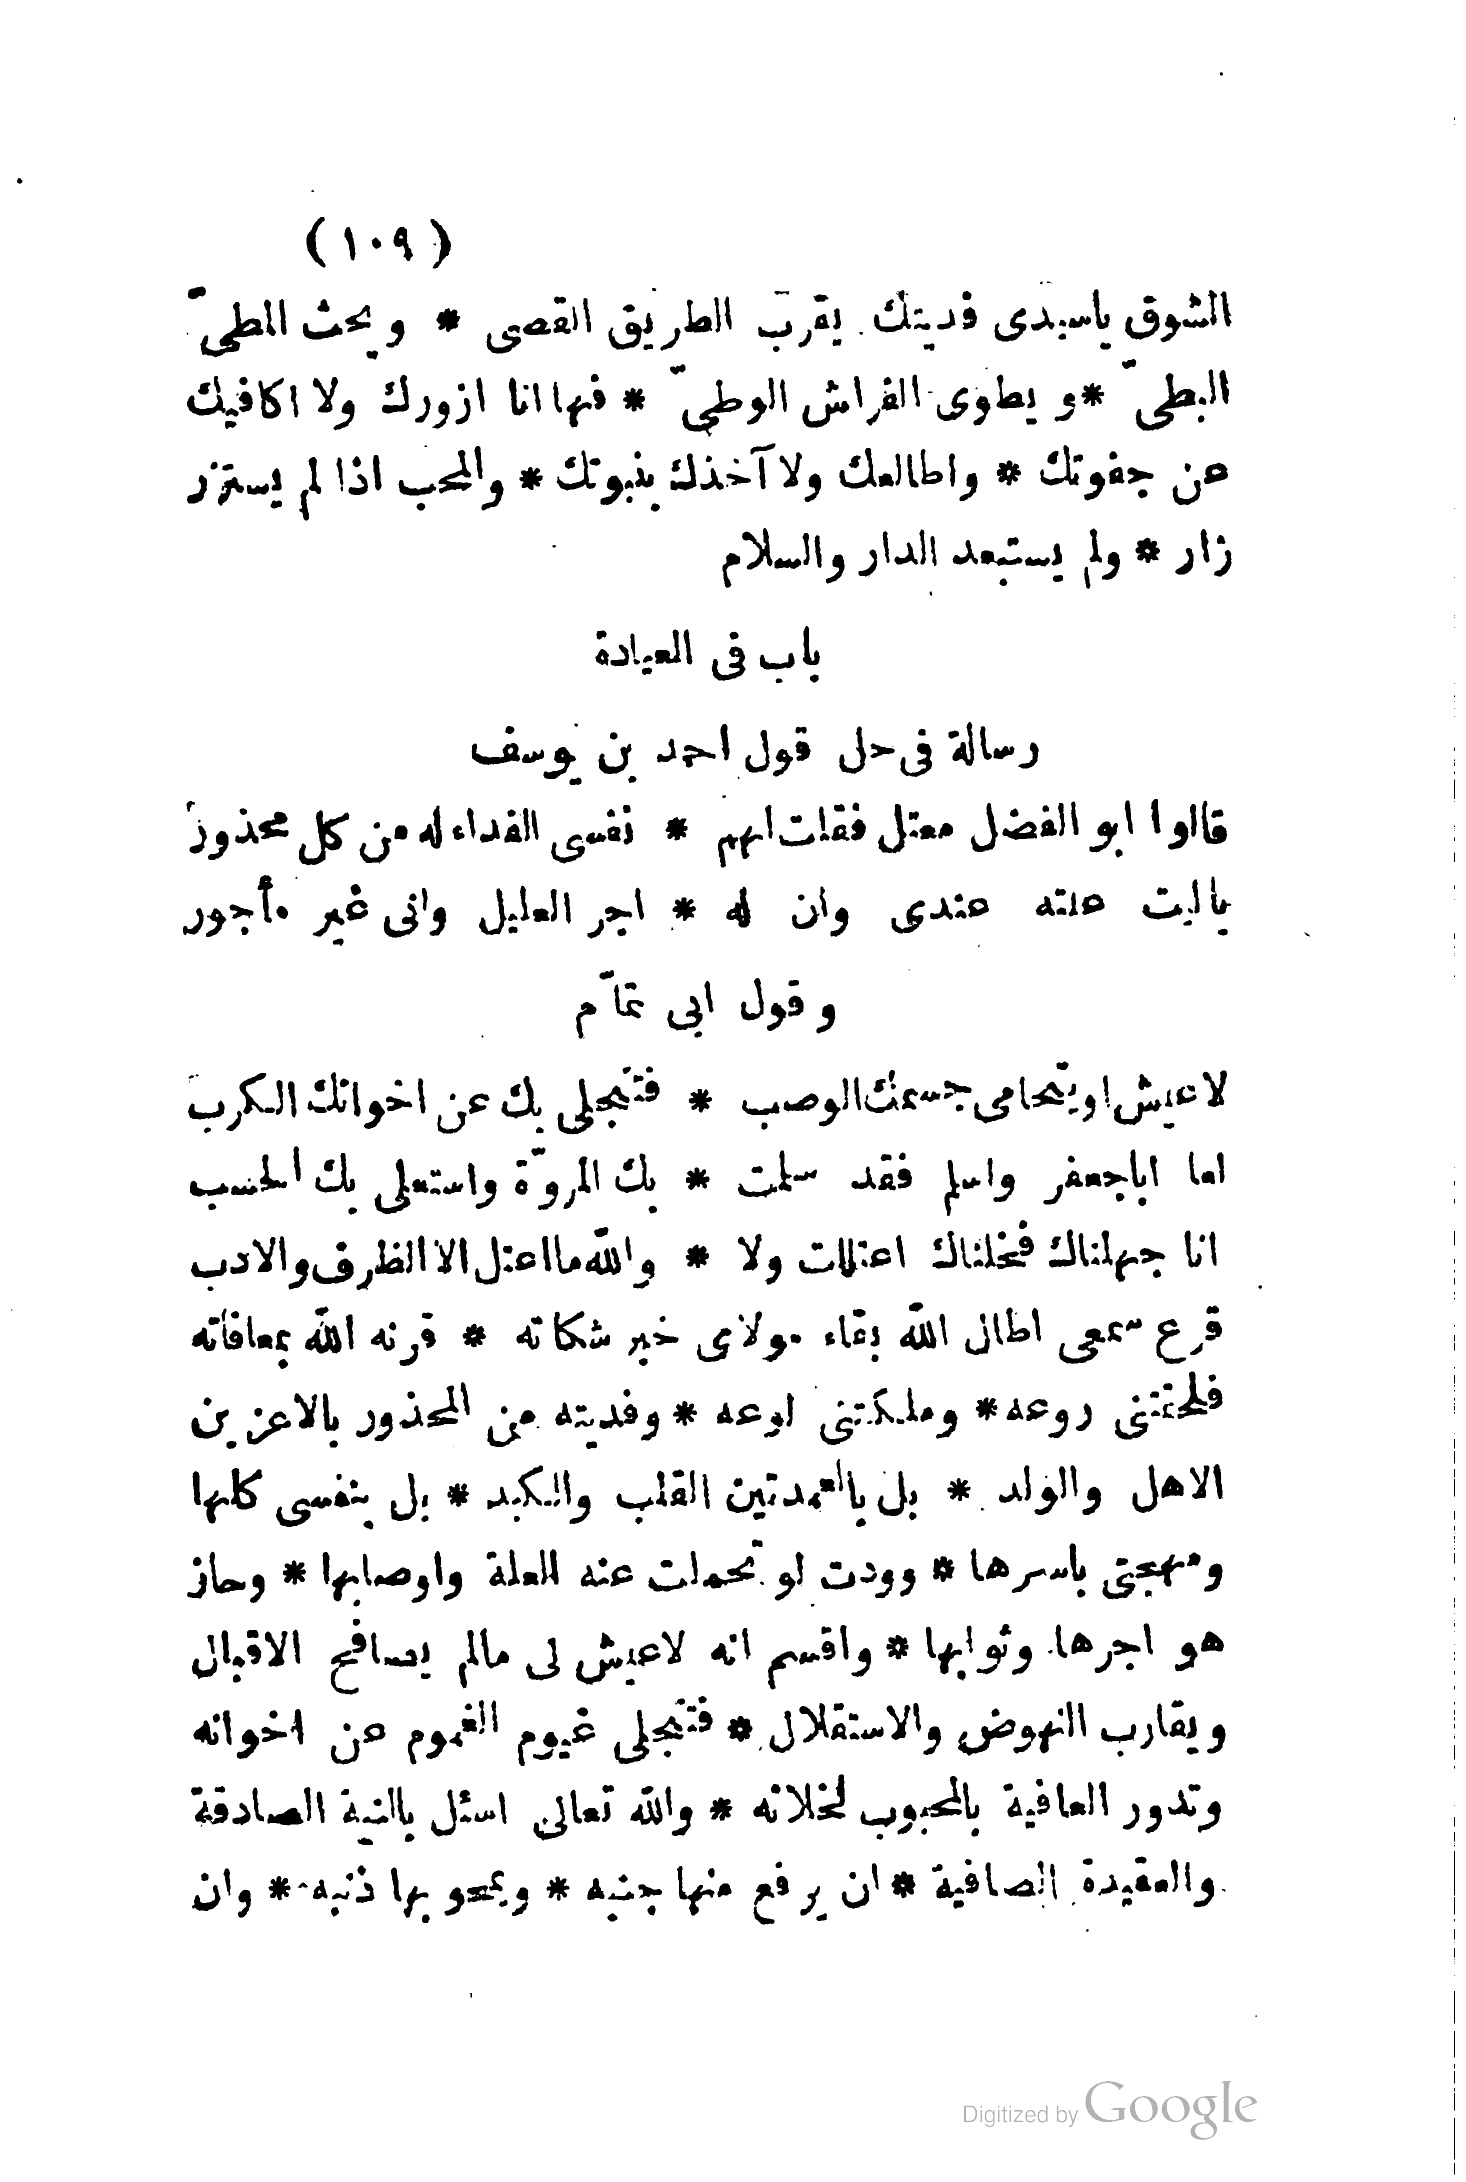 (١٠٩)
الشوق ياسيدى فديتك يقرب الطريق القصى * ويحث المطىّ
البطىّ * و يطوى الفراش الوطىّ * فها انا ازورك ولا اكافيك
عن جفوتك * واطالعك ولا آخذك بنبوتك * والمحب اذا لم يستزر
زار * ولم يستبعد الدار والسلام
باب فى العيادة
رسالة فى حل قول احمد بن يوسف
قالوا ابو الفضل معتل فقلت لهم * نفسى الفداء له من كل محذور
ياليت علته عندى وان له * اجر العليل وانى غير مأجور
وقول ابى تمّام
لاعيش او يتحامى جسمك الوصب * فتنجلى بك عن اخوانك الكرب
اما اباجعفر واسلم فقد سلمت * بك المروّة واستعلى بك الحسب
انا جهلناك فخلناك اعتللت ولا * والله ما اعتل الا الظرف والادب
قرع سمعى اطال الله بقاء مولاى خبر شكاته * قرنه الله بمعافاته
فلحقتنى روعه * وملكتنى لوعه * وفديته من المحذور بالاعزين
الاهل والولد * بل بالعمدتين القلب والكبد * بل بنفسى كلها
ومهجتى باسرها * وودت لو تحملت عنه العلة واوصابها * وحاز
هو اجرها وثوابها * واقسم انه لاعيش لى مالم يصافح الاقبال
ويقارب النهوض والاستقلال * فتنجلى غيوم الغموم عن اخوانه
وتدور العافية بالمحبوب لخلانه * والله تعالى اسئل بالنية الصادقة
والعقيدة الصافية * ان يرفع منها جنبه * ويمحو بها ذنبه * وان
Digitized by Google